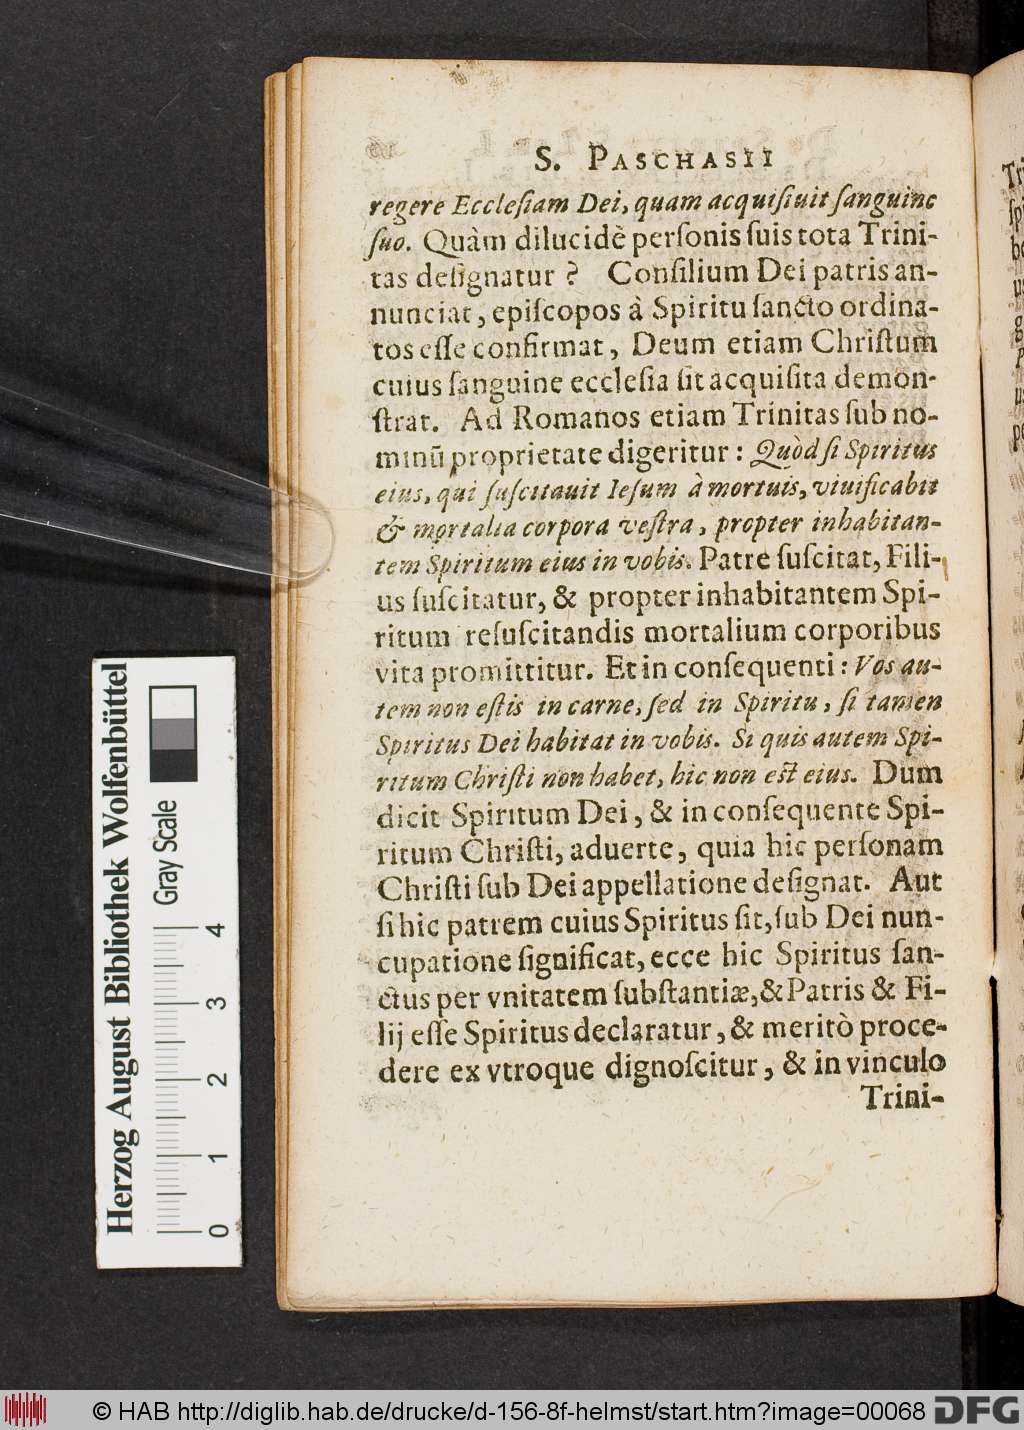 S. PASCHASII
regere Eccleſiam Dei, quam acquiſiuit ſanguine
ſuo. Quàm dilucidè perſonis ſuis tota Trini-
tas deſignatur ? Conſilium Dei patris an-
nunciat, epiſcopos à Spiritu ſancto ordina-
tos eſſe confirmat, Deum etiam Chriſtum
cuius ſanguine eccleſia ſit acquiſita demon-
ſtrat. Ad Romanos etiam Trinitas ſub no-
minū proprietate digeritur : Quòd ſi Spiritus
eius, qui ſuſcitauit Ieſum à mortuis, viuificabit
& mortalia corpora veſtra, propter inhabitan-
tem Spiritum eius in vobis. Patre ſuſcitat, Fili-
us ſuſcitatur, & propter inhabitantem Spi-
ritum reſuſcitandis mortalium corporibus
vita promittitur. Et in conſequenti : Vos au-
tem non eſtis in carne, ſed in Spiritu, ſi tamen
Spiritus Dei habitat in vobis. Si quis autem Spi-
ritum Chriſti non habet, hic non eſt eius. Dum
dicit Spiritum Dei, & in conſequente Spi-
ritum Chriſti, aduerte, quia hic perſonam
Chriſti ſub Dei appellatione deſignat. Aut
ſi hic patrem cuius Spiritus ſit, ſub Dei nun-
cupatione ſignificat, ecce hic Spiritus ſan-
ctus per vnitatem ſubſtantiæ, & Patris & Fi-
lij eſſe Spiritus declaratur, & meritò proce-
dere ex vtroque dignoſcitur, & in vinculo
Trini-
Herzog August Bibliothek Wolfenbüttel
Gray Scale
0 1 2 3 4
© HAB http://diglib.hab.de/drucke/d-156-8f-helmst/start.htm?image=00068
DFG